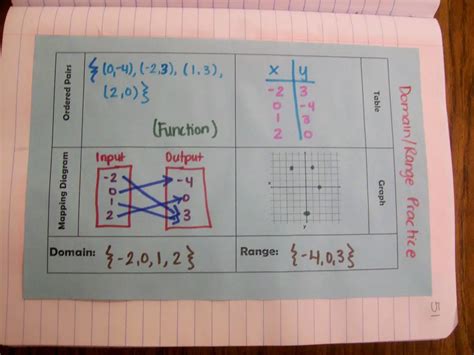 Domain/Range Practice
Ordered Pairs
{(0,-4), (-2,3), (1,3),
(2,0)}
(Function)
Table
x y
-2 3
0 -4
1 3
2 0
Mapping Diagram
Input Output
-2 -4
0 0
1 3
2
Graph
Domain: {-2,0,1,2}
Range: {-4,0,3}
51